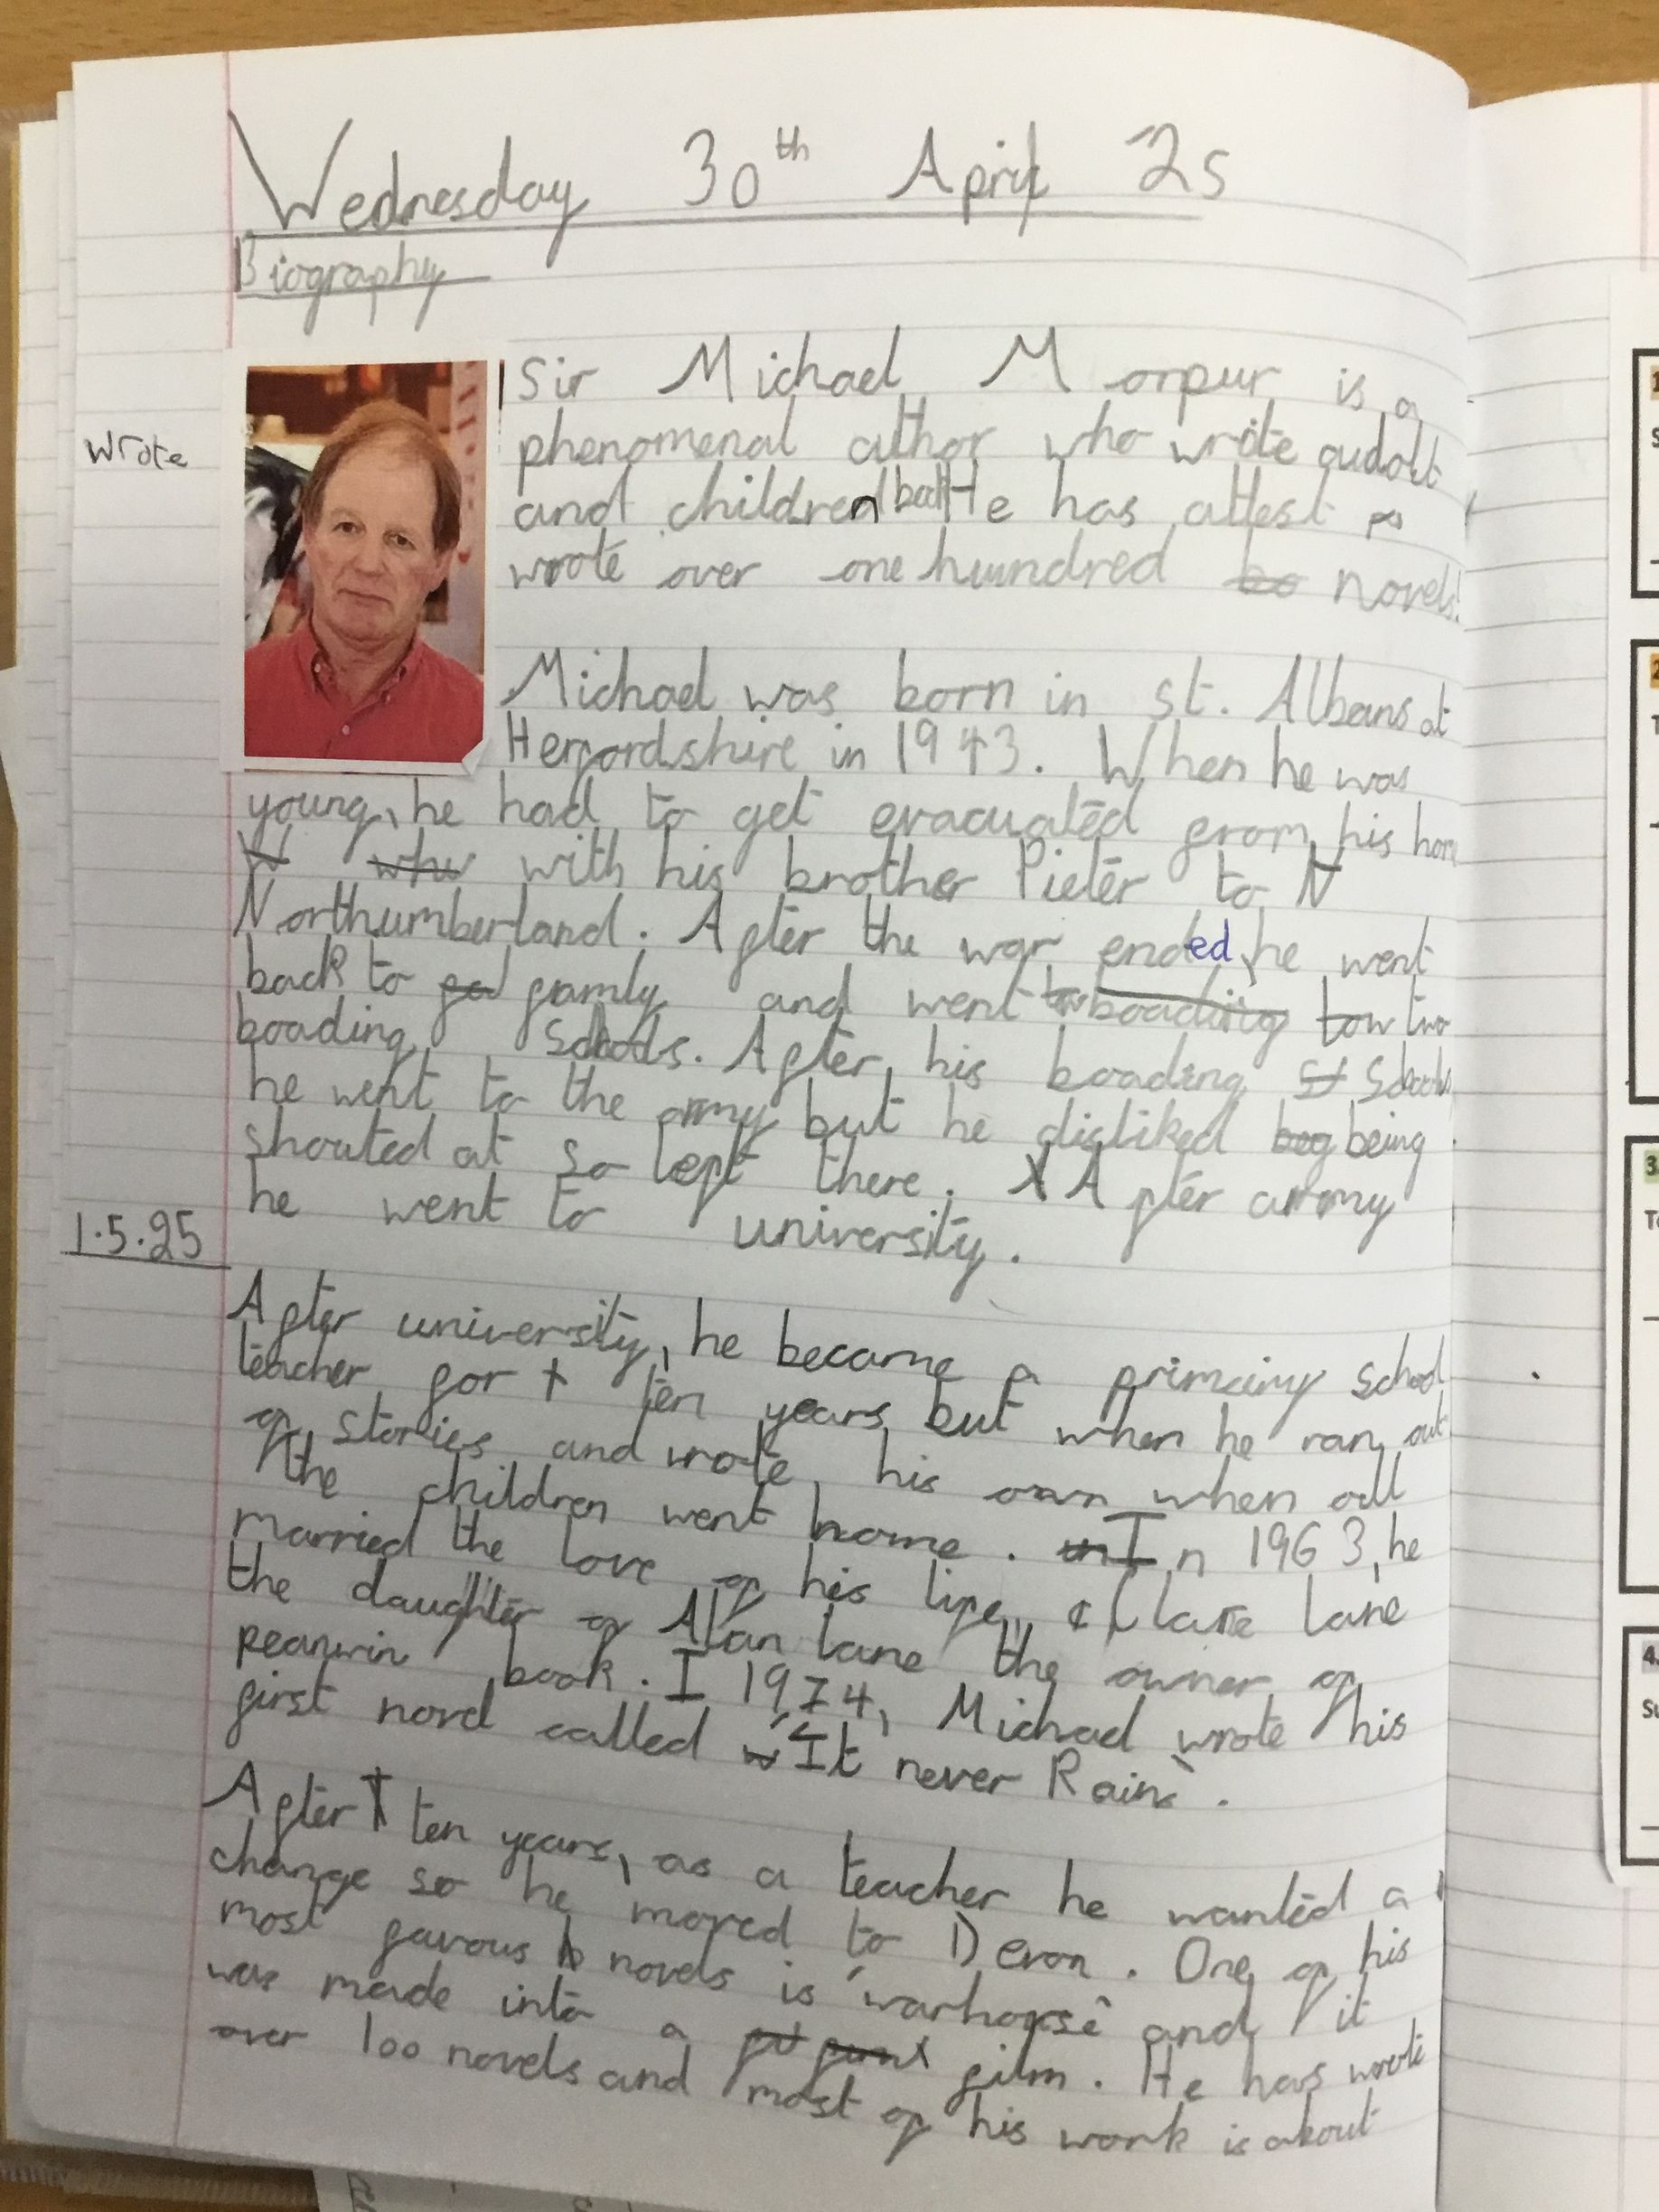 Wednesday 30th April 25
Biography
Sir Michael Morpur is a
phenomenal athor who wrote audolt
wrote
and children book He has attest
wrote over one hundred novels!
Michael was born in St. Albans at
Herfordshire in 1943. When he was
young, he had to get evacuated from his home
with his brother Pieter to N
Northumberland. After the war ended, he went
back to famly and went two
boading Schools. After his boading Schools
he went to the army but he disliked being
shouted at so left there. After army
he went to university.
1.5.25
After university, he became a primairy school
teacher for ten years but when he ran out
of stories and wrote his own when all
the children went home. In 1963, he
married the love of his life, Clare lane
the daughter of Alan lane the owner of
peanwin book. I 1974, Michael wrote his
first novel called "It never Rains".
After ten years, as a teacher he wanted a
change so he moved to Devon. One of his
most favous novels is 'warhorse' and it
was made into a film. He has wrote
over 100 novels and most of his work is about